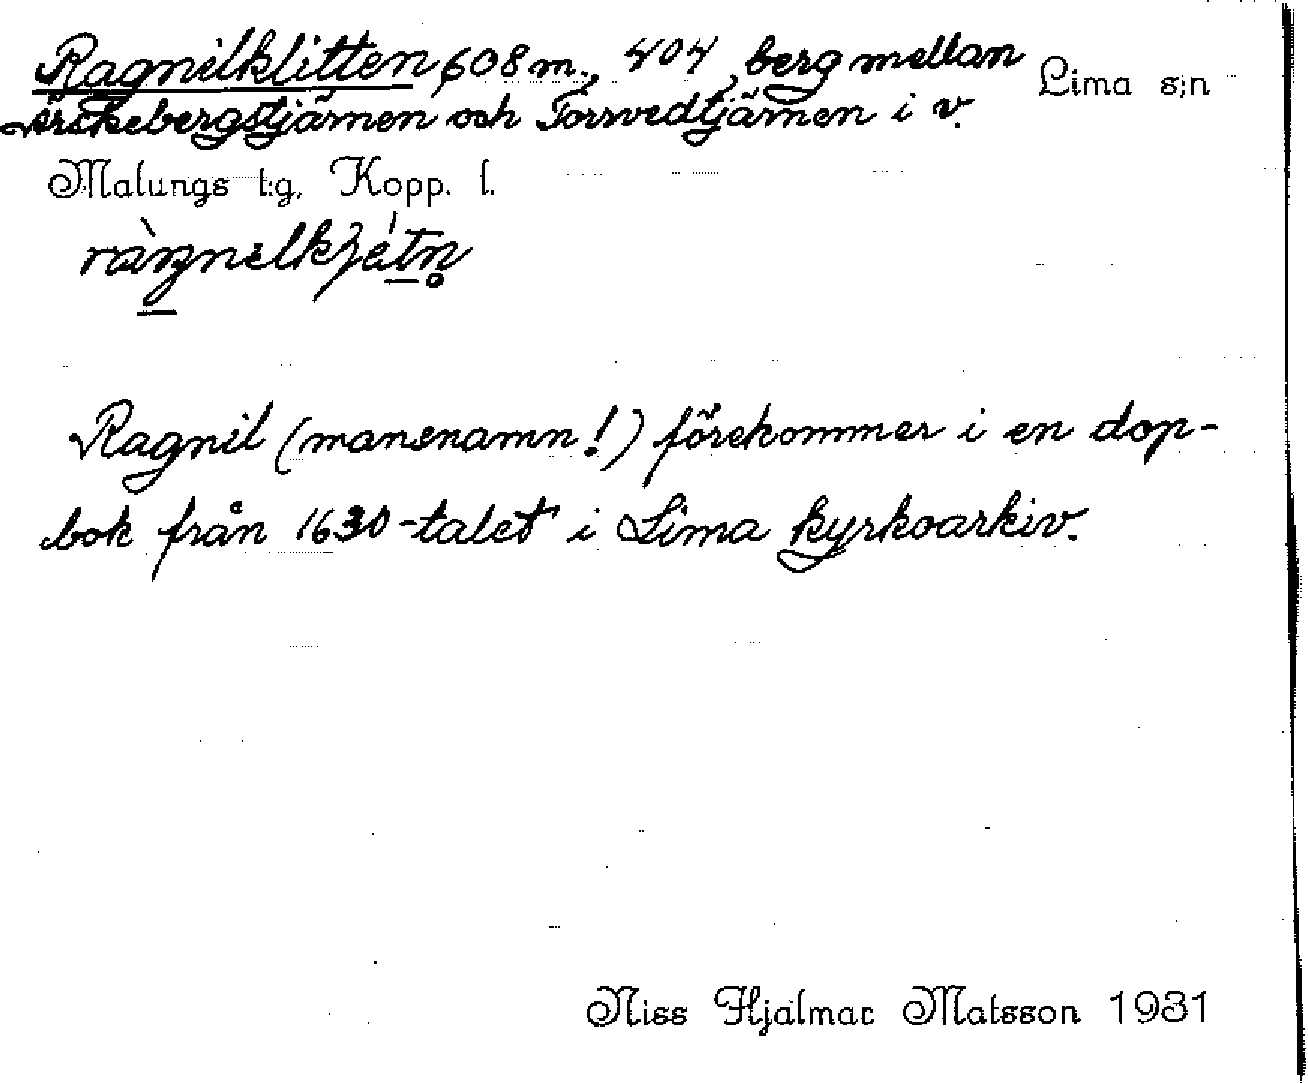 Ragnilklitten 608 m., 404, berg mellan Lima s:n
Ärckebergstjärnen och Torrvedtjärnen i v.
Malungs t:g, Kopp. l.
Ragnil (mansnamn!) förekommer i en dop-
bok från 1630-talet i Lima kyrkoarkiv.
Niss Hjalmar Matsson 1931